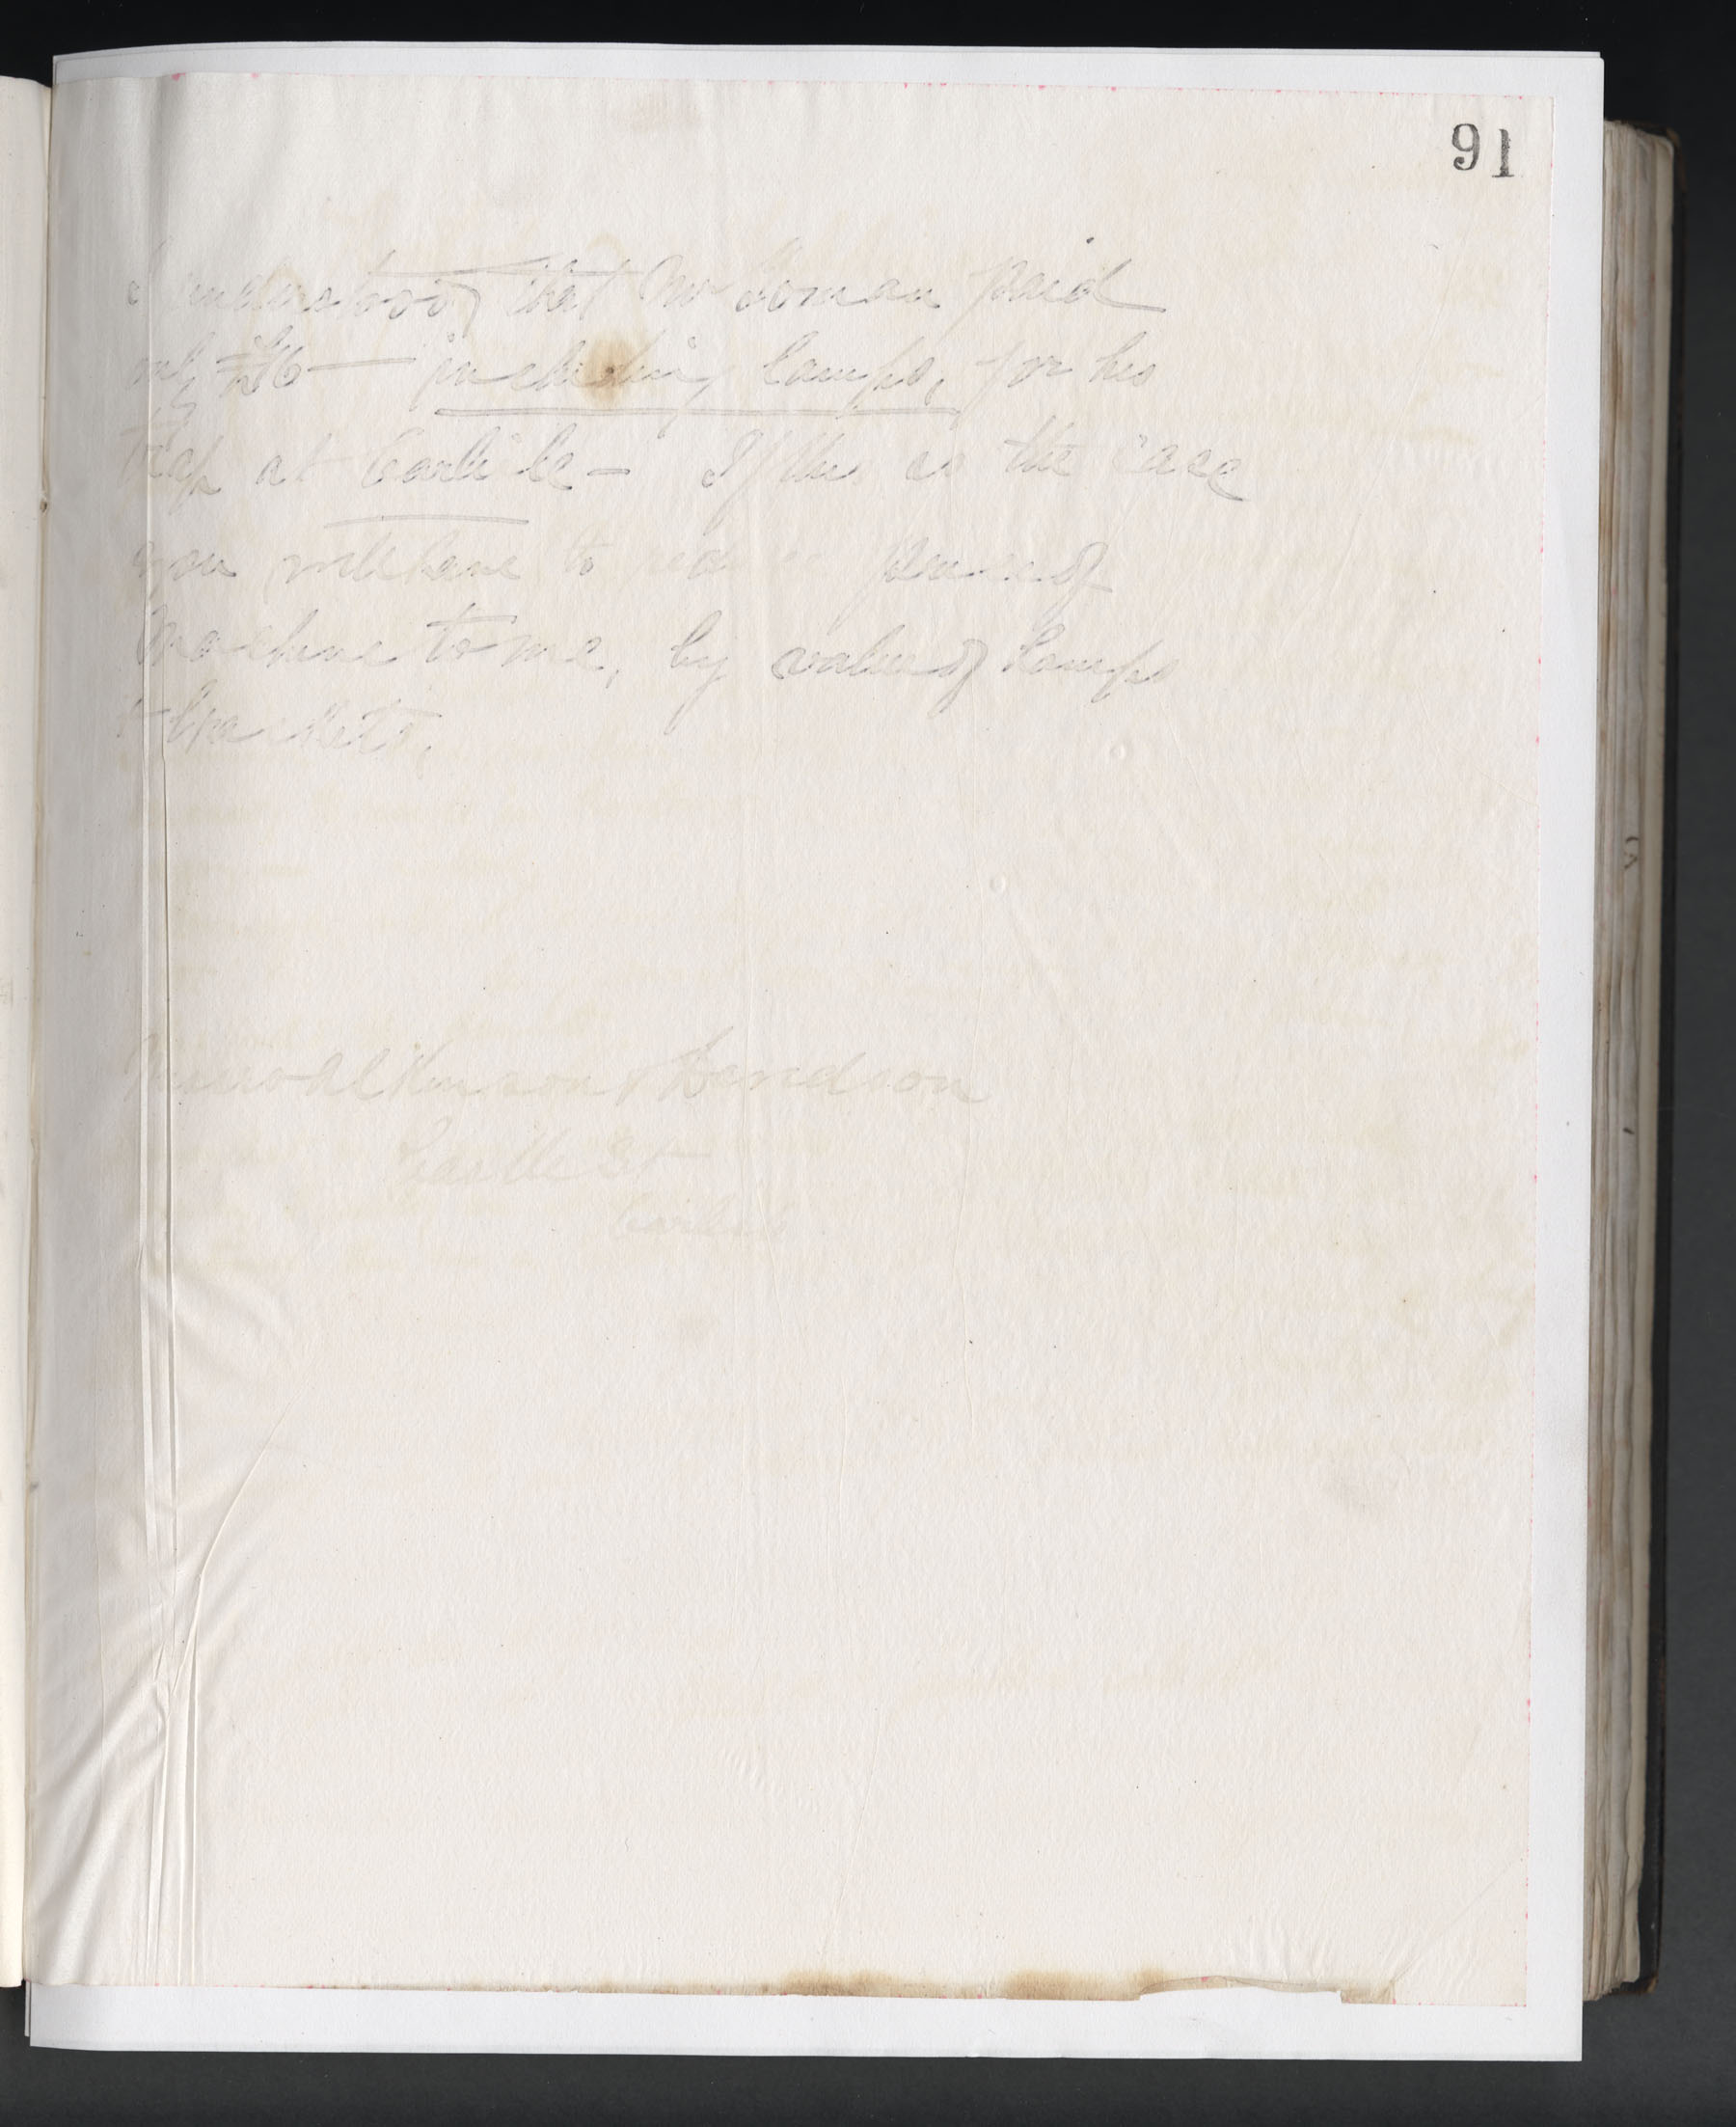 91
I understood that Mr Loman paid
only £26 — including lamps, for his
trap at Carlisle — If this is the case
you will have to reduce price of
Machine to me, by value of lamps
& brackets.
Messrs Atkinson & Davidson
Castle St
Carlisle